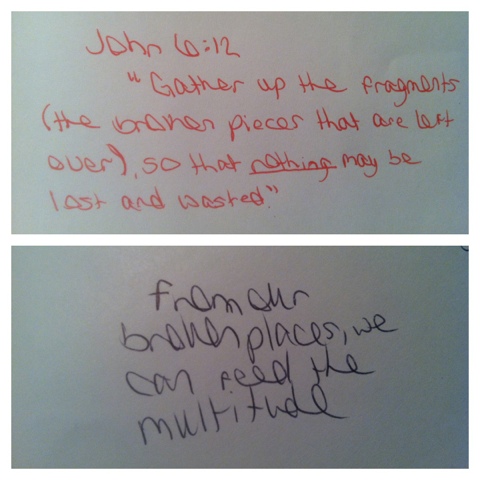 John 6:12
"Gather up the fragments
(the broken pieces that are left
over), so that nothing may be
lost and wasted."
from our
broken places, we
can feed the
multitude